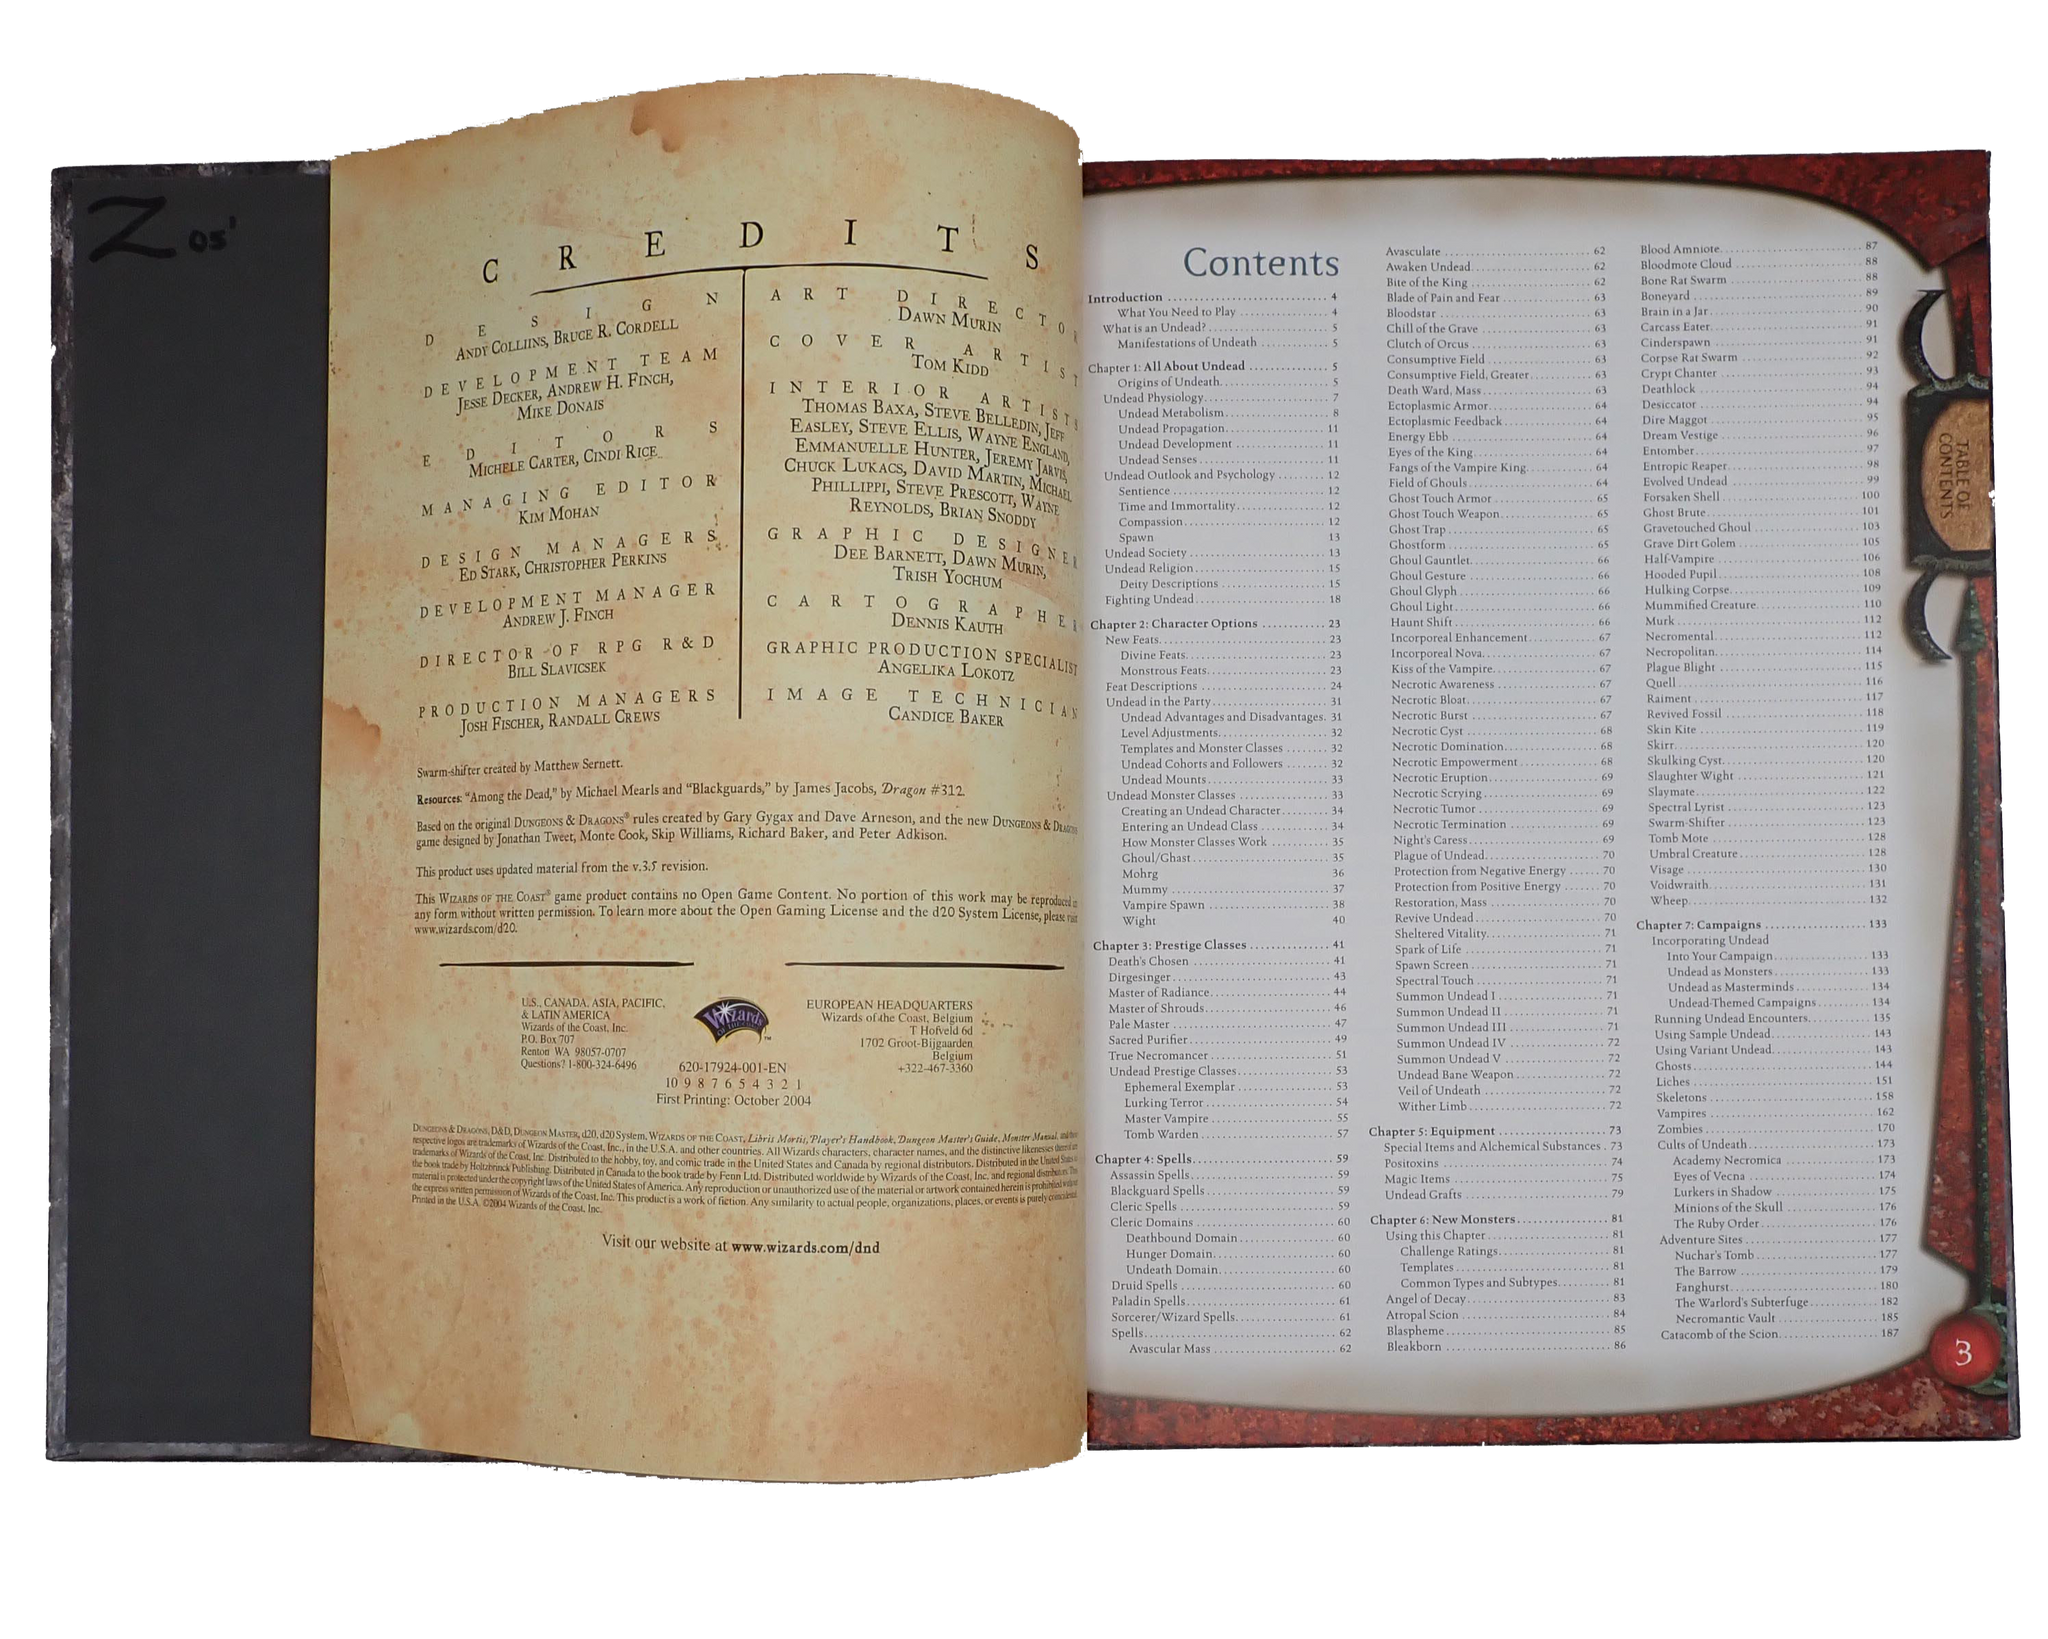 Z 05'
CREDITS
DESIGN
ANDY COLLIINS, BRUCE R. CORDELL
DEVELOPMENT TEAM
JESSE DECKER, ANDREW H. FINCH,
MIKE DONAIS
EDITORS
MICHELE CARTER, CINDI RICE
MANAGING EDITOR
KIM MOHAN
DESIGN MANAGERS
ED STARK, CHRISTOPHER PERKINS
DEVELOPMENT MANAGER
ANDREW J. FINCH
DIRECTOR OF RPG R&D
BILL SLAVICSEK
PRODUCTION MANAGERS
JOSH FISCHER, RANDALL CREWS
ART DIRECTOR
DAWN MURIN
COVER ARTIST
TOM KIDD
INTERIOR ARTISTS
THOMAS BAXA, STEVE BELLEDIN, JEFF
EASLEY, STEVE ELLIS, WAYNE ENGLAND,
EMMANUELLE HUNTER, JEREMY JARVIS,
CHUCK LUKACS, DAVID MARTIN, MICHAEL
PHILLIPPI, STEVE PRESCOTT, WAYNE
REYNOLDS, BRIAN SNODDY
GRAPHIC DESIGNER
DEE BARNETT, DAWN MURIN,
TRISH YOCHUM
CARTOGRAPHER
DENNIS KAUTH
GRAPHIC PRODUCTION SPECIALIST
ANGELIKA LOKOTZ
IMAGE TECHNICIAN
CANDICE BAKER
Swarm-shifter created by Matthew Sernett.
Resources: “Among the Dead,” by Michael Mearls and “Blackguards,” by James Jacobs, Dragon #312.
Based on the original DUNGEONS & DRAGONS® rules created by Gary Gygax and Dave Arneson, and the new DUNGEONS & DRAGONS
game designed by Jonathan Tweet, Monte Cook, Skip Williams, Richard Baker, and Peter Adkison.
This product uses updated material from the v.3.5 revision.
This WIZARDS OF THE COAST® game product contains no Open Game Content. No portion of this work may be reproduced in
any form without written permission. To learn more about the Open Gaming License and the d20 System License, please visit
www.wizards.com/d20.
U.S., CANADA, ASIA, PACIFIC,
& LATIN AMERICA
Wizards of the Coast, Inc.
P.O. Box 707
Renton WA 98057-0707
Questions? 1-800-324-6496
Wizards OF THE COAST ™
620-17924-001-EN
10 9 8 7 6 5 4 3 2 1
First Printing: October 2004
EUROPEAN HEADQUARTERS
Wizards of the Coast, Belgium
T Hofveld 6d
1702 Groot-Bijgaarden
Belgium
+322-467-3360
DUNGEONS & DRAGONS, D&D, DUNGEON MASTER, d20, d20 System, WIZARDS OF THE COAST, Libris Mortis, Player's Handbook, Dungeon Master's Guide, Monster Manual, and their
respective logos are trademarks of Wizards of the Coast, Inc., in the U.S.A. and other countries. All Wizards characters, character names, and the distinctive likenesses thereof are
trademarks of Wizards of the Coast, Inc. Distributed to the hobby, toy, and comic trade in the United States and Canada by regional distributors. Distributed in the United States to
the book trade by Holtzbrinck Publishing. Distributed in Canada to the book trade by Fenn Ltd. Distributed worldwide by Wizards of the Coast, Inc. and regional distributors. This
material is protected under the copyright laws of the United States of America. Any reproduction or unauthorized use of the material or artwork contained herein is prohibited without
the express written permission of Wizards of the Coast, Inc. This product is a work of fiction. Any similarity to actual people, organizations, places, or events is purely coincidental.
Printed in the U.S.A. ©2004 Wizards of the Coast, Inc.
Visit our website at www.wizards.com/dnd
Contents
Introduction 4
What You Need to Play 4
What is an Undead? 5
Manifestations of Undeath 5
Chapter 1: All About Undead 5
Origins of Undeath 5
Undead Physiology 7
Undead Metabolism 8
Undead Propagation 11
Undead Development 11
Undead Senses 11
Undead Outlook and Psychology 12
Sentience 12
Time and Immortality 12
Compassion 12
Spawn 13
Undead Society 13
Undead Religion 15
Deity Descriptions 15
Fighting Undead 18
Chapter 2: Character Options 23
New Feats 23
Divine Feats 23
Monstrous Feats 23
Feat Descriptions 24
Undead in the Party 31
Undead Advantages and Disadvantages. 31
Level Adjustments 32
Templates and Monster Classes 32
Undead Cohorts and Followers 32
Undead Mounts 33
Undead Monster Classes 33
Creating an Undead Character 34
Entering an Undead Class 34
How Monster Classes Work 35
Ghoul/Ghast 35
Mohrg 36
Mummy 37
Vampire Spawn 38
Wight 40
Chapter 3: Prestige Classes 41
Death's Chosen 41
Dirgesinger 43
Master of Radiance 44
Master of Shrouds 46
Pale Master 47
Sacred Purifier 49
True Necromancer 51
Undead Prestige Classes 53
Ephemeral Exemplar 53
Lurking Terror 54
Master Vampire 55
Tomb Warden 57
Chapter 4: Spells 59
Assassin Spells 59
Blackguard Spells 59
Cleric Spells 59
Cleric Domains 60
Deathbound Domain 60
Hunger Domain 60
Undeath Domain 60
Druid Spells 60
Paladin Spells 61
Sorcerer/Wizard Spells 61
Spells 62
Avascular Mass 62
Avasculate 62
Awaken Undead 62
Bite of the King 62
Blade of Pain and Fear 63
Bloodstar 63
Chill of the Grave 63
Clutch of Orcus 63
Consumptive Field 63
Consumptive Field, Greater 63
Death Ward, Mass 63
Ectoplasmic Armor 64
Ectoplasmic Feedback 64
Energy Ebb 64
Eyes of the King 64
Fangs of the Vampire King 64
Field of Ghouls 64
Ghost Touch Armor 65
Ghost Touch Weapon 65
Ghost Trap 65
Ghostform 65
Ghoul Gauntlet 66
Ghoul Gesture 66
Ghoul Glyph 66
Ghoul Light 66
Haunt Shift 66
Incorporeal Enhancement 67
Incorporeal Nova 67
Kiss of the Vampire 67
Necrotic Awareness 67
Necrotic Bloat 67
Necrotic Burst 67
Necrotic Cyst 68
Necrotic Domination 68
Necrotic Empowerment 68
Necrotic Eruption 69
Necrotic Scrying 69
Necrotic Tumor 69
Necrotic Termination 69
Night's Caress 69
Plague of Undead 70
Protection from Negative Energy 70
Protection from Positive Energy 70
Restoration, Mass 70
Revive Undead 70
Sheltered Vitality 71
Spark of Life 71
Spawn Screen 71
Spectral Touch 71
Summon Undead I 71
Summon Undead II 71
Summon Undead III 71
Summon Undead IV 72
Summon Undead V 72
Undead Bane Weapon 72
Veil of Undeath 72
Wither Limb 72
Chapter 5: Equipment 73
Special Items and Alchemical Substances . 73
Positoxins 74
Magic Items 75
Undead Grafts 79
Chapter 6: New Monsters 81
Using this Chapter 81
Challenge Ratings 81
Templates 81
Common Types and Subtypes 81
Angel of Decay 83
Atropal Scion 84
Blaspheme 85
Bleakborn 86
Blood Amniote 87
Bloodmote Cloud 88
Bone Rat Swarm 88
Boneyard 89
Brain in a Jar 90
Carcass Eater 91
Cinderspawn 91
Corpse Rat Swarm 92
Crypt Chanter 93
Deathlock 94
Desiccator 94
Dire Maggot 95
Dream Vestige 96
Entomber 97
Entropic Reaper 98
Evolved Undead 99
Forsaken Shell 100
Ghost Brute 101
Gravetouched Ghoul 103
Grave Dirt Golem 105
Half-Vampire 106
Hooded Pupil 108
Hulking Corpse 109
Mummified Creature 110
Murk 112
Necromental 112
Necropolitan 114
Plague Blight 115
Quell 116
Raiment 117
Revived Fossil 118
Skin Kite 119
Skirr 120
Skulking Cyst 120
Slaughter Wight 121
Slaymate 122
Spectral Lyrist 123
Swarm-Shifter 123
Tomb Mote 128
Umbral Creature 128
Visage 130
Voidwraith 131
Wheep 132
Chapter 7: Campaigns 133
Incorporating Undead
Into Your Campaign 133
Undead as Monsters 133
Undead as Masterminds 134
Undead-Themed Campaigns 134
Running Undead Encounters 135
Using Sample Undead 143
Using Variant Undead 143
Ghosts 144
Liches 151
Skeletons 158
Vampires 162
Zombies 170
Cults of Undeath 173
Academy Necromica 173
Eyes of Vecna 174
Lurkers in Shadow 175
Minions of the Skull 176
The Ruby Order 176
Adventure Sites 177
Nuchar's Tomb 177
The Barrow 179
Fanghurst 180
The Warlord's Subterfuge 182
Necromantic Vault 185
Catacomb of the Scion 187
TABLE OF
CONTENTS
3